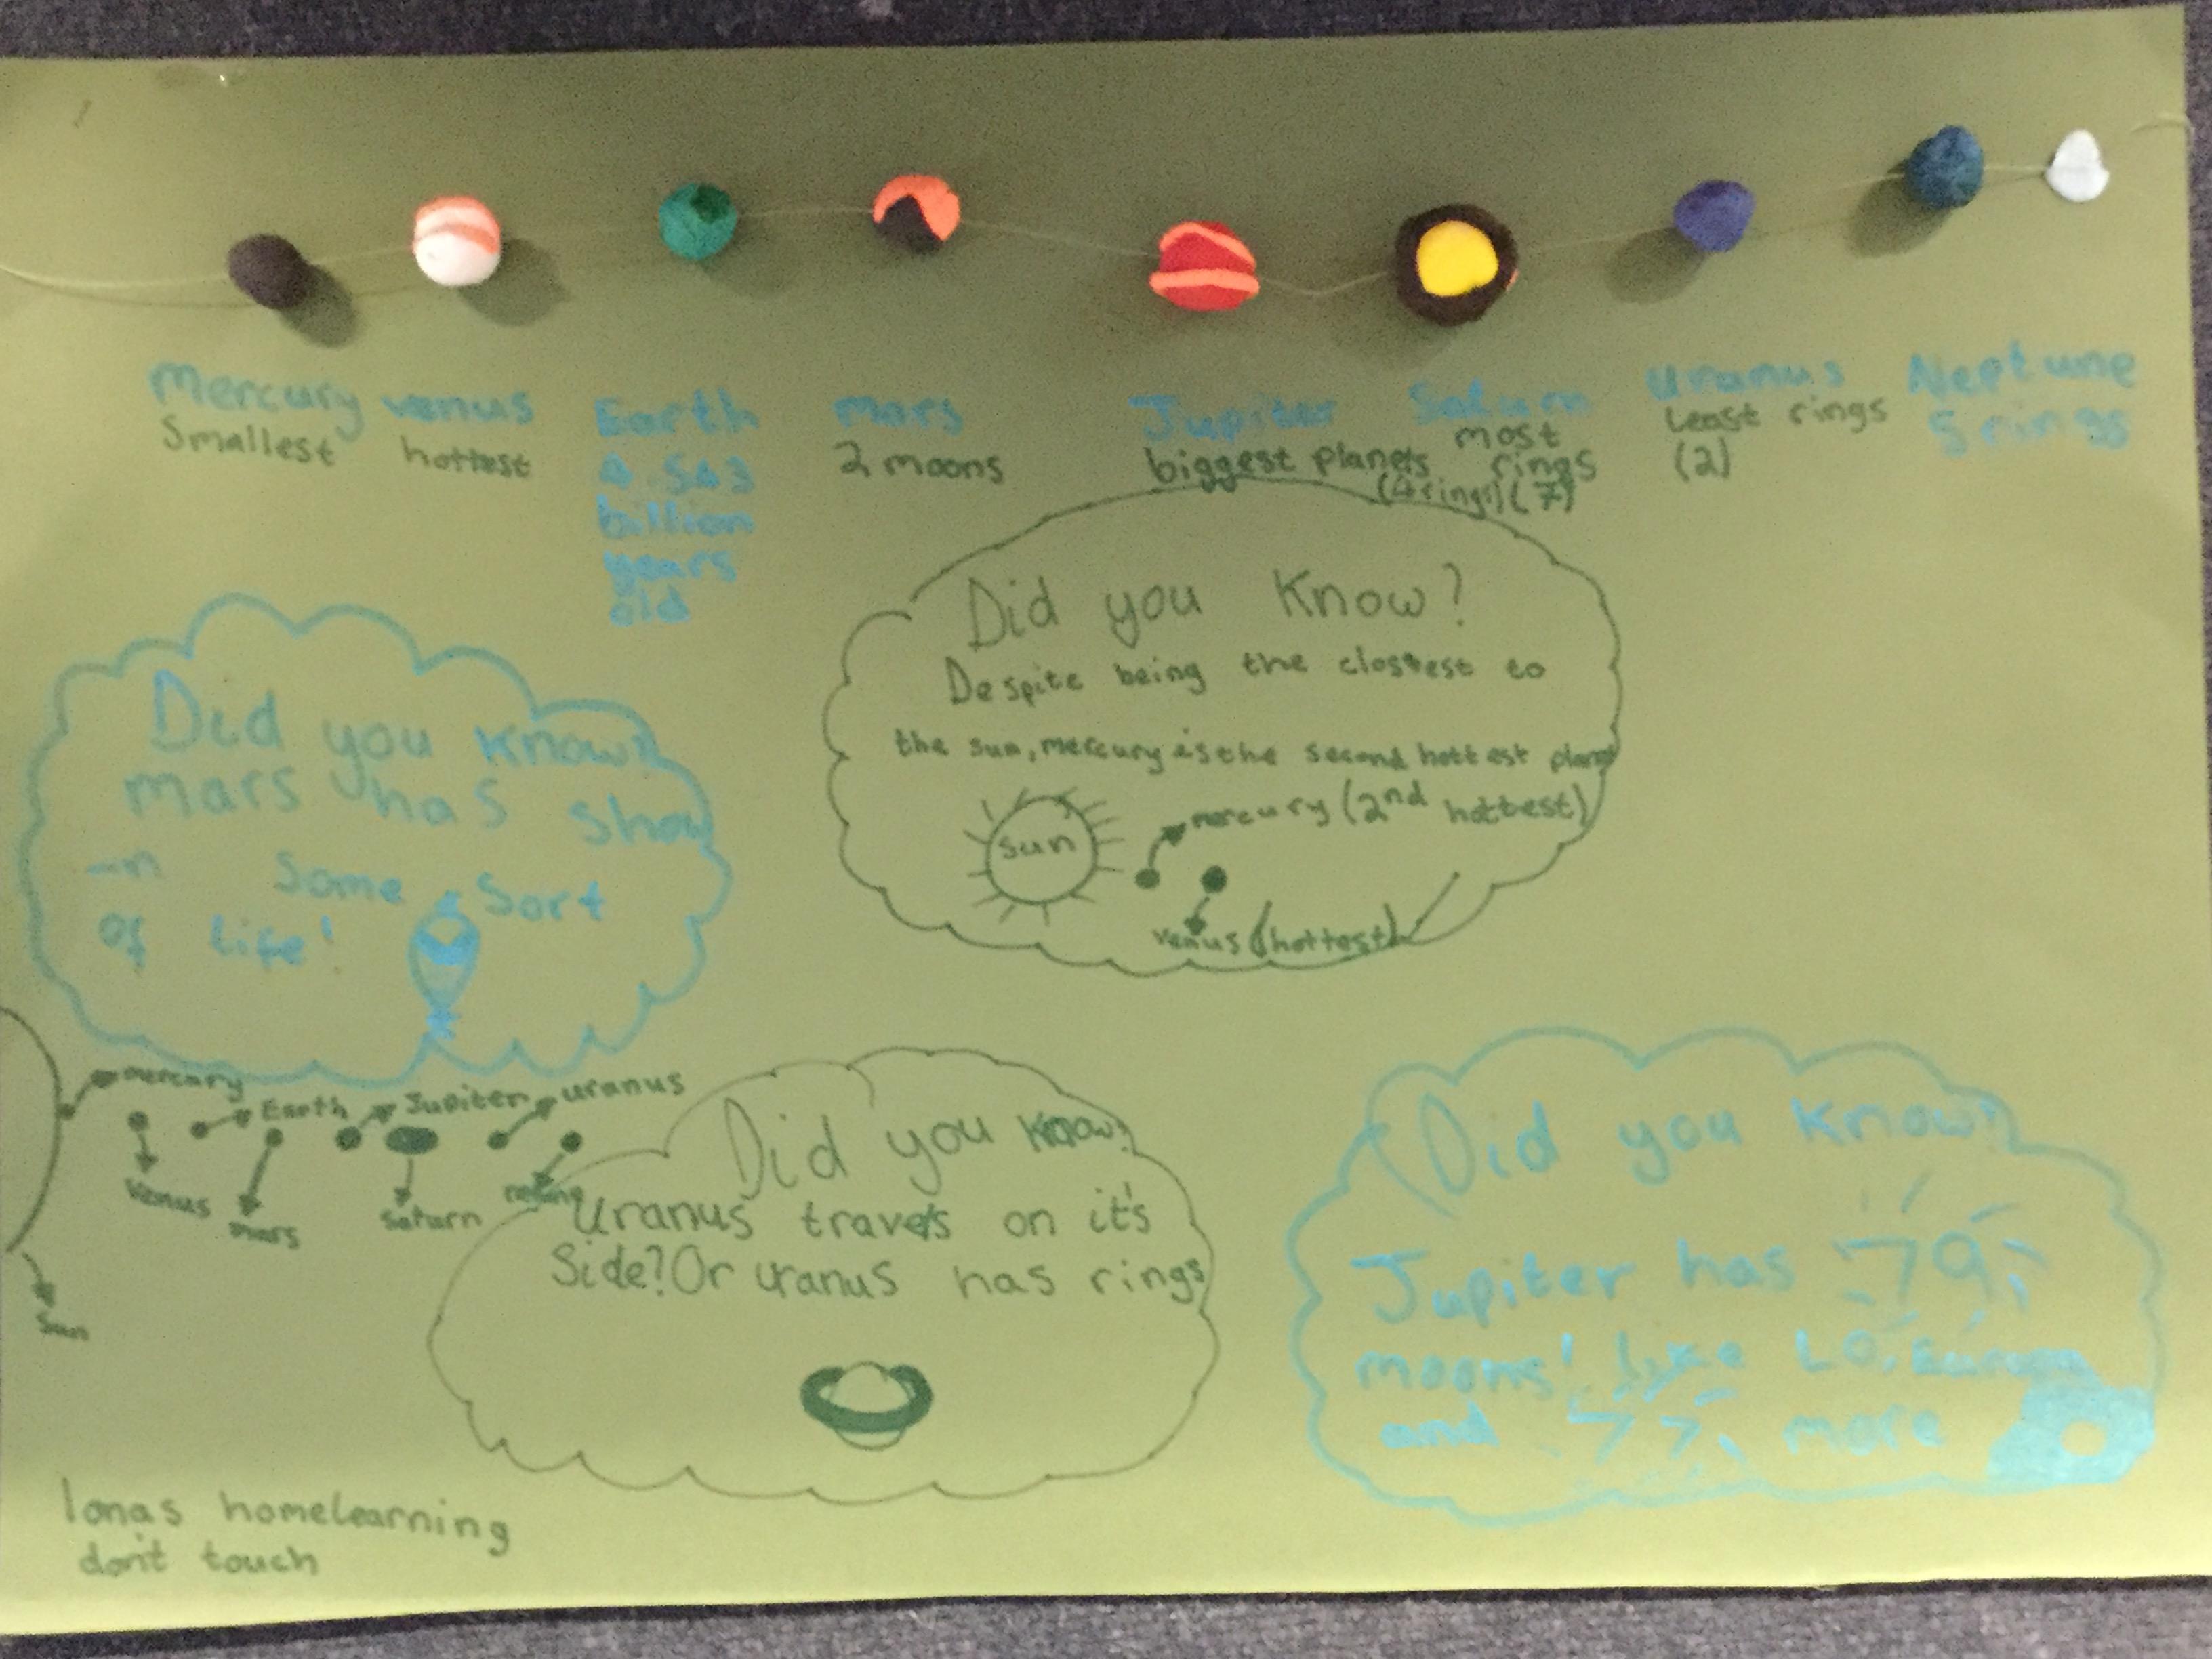 Mercury
Smallest
venus
hottest
Earth
4.543
billion
years
old
Mars
2 moons
Jupiter
biggest planets
(4 rings)
Saturn
most
rings
(7)
Uranus
Least rings
(2)
Neptune
5 rings
Did you know?
Despite being the clostest to
the sun, mercury is the second hottest planet
sun
mercury (2nd hottest)
venus (hottest)
Did you know?
Mars has show
-n some sort
of life!
mercury
Earth
Jupiter
uranus
Venus
mars
saturn
Sun
Did you know?
Uranus travels on it's
Side? Or uranus has rings
Did you know?
Jupiter has 79
moons! like LO, Europa
and 77 more
Ionas homelearning
don't touch